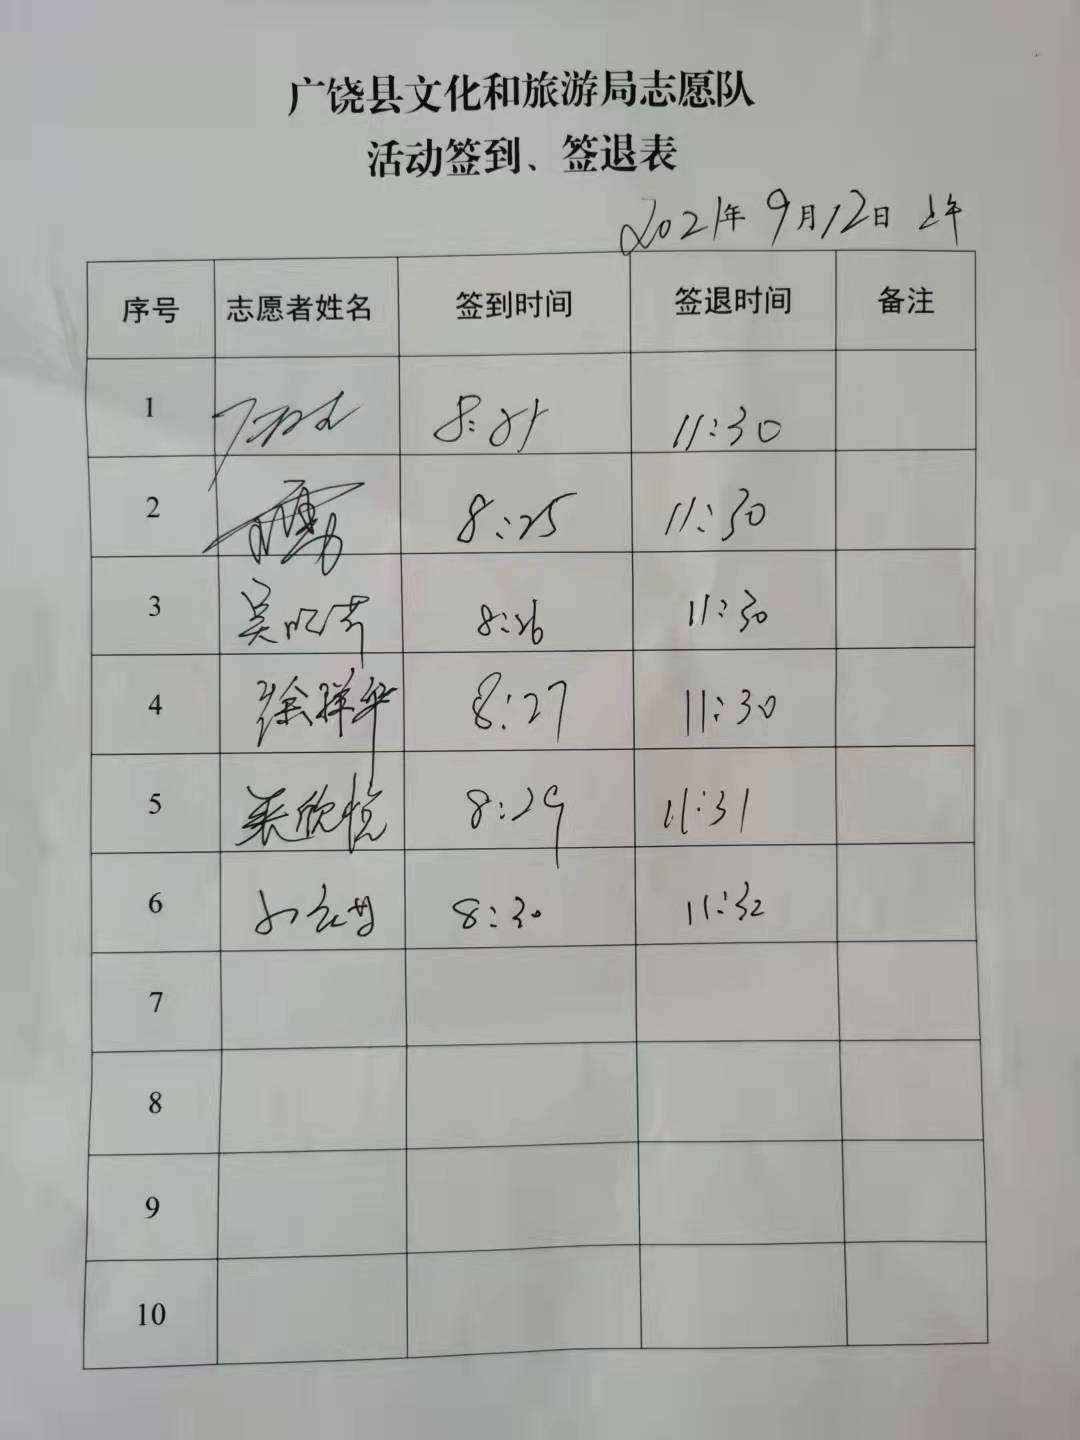 广饶县文化和旅游局志愿队
活动签到、签退表
2021年9月12日 上午
序号 志愿者姓名 签到时间 签退时间 备注
1 11:30
2 8:25 11:30
3 8:26 11:30
4 徐祥华 8:27 11:30
5 欣悦 8:29 11:31
6 8:30 11:32
7
8
9
10